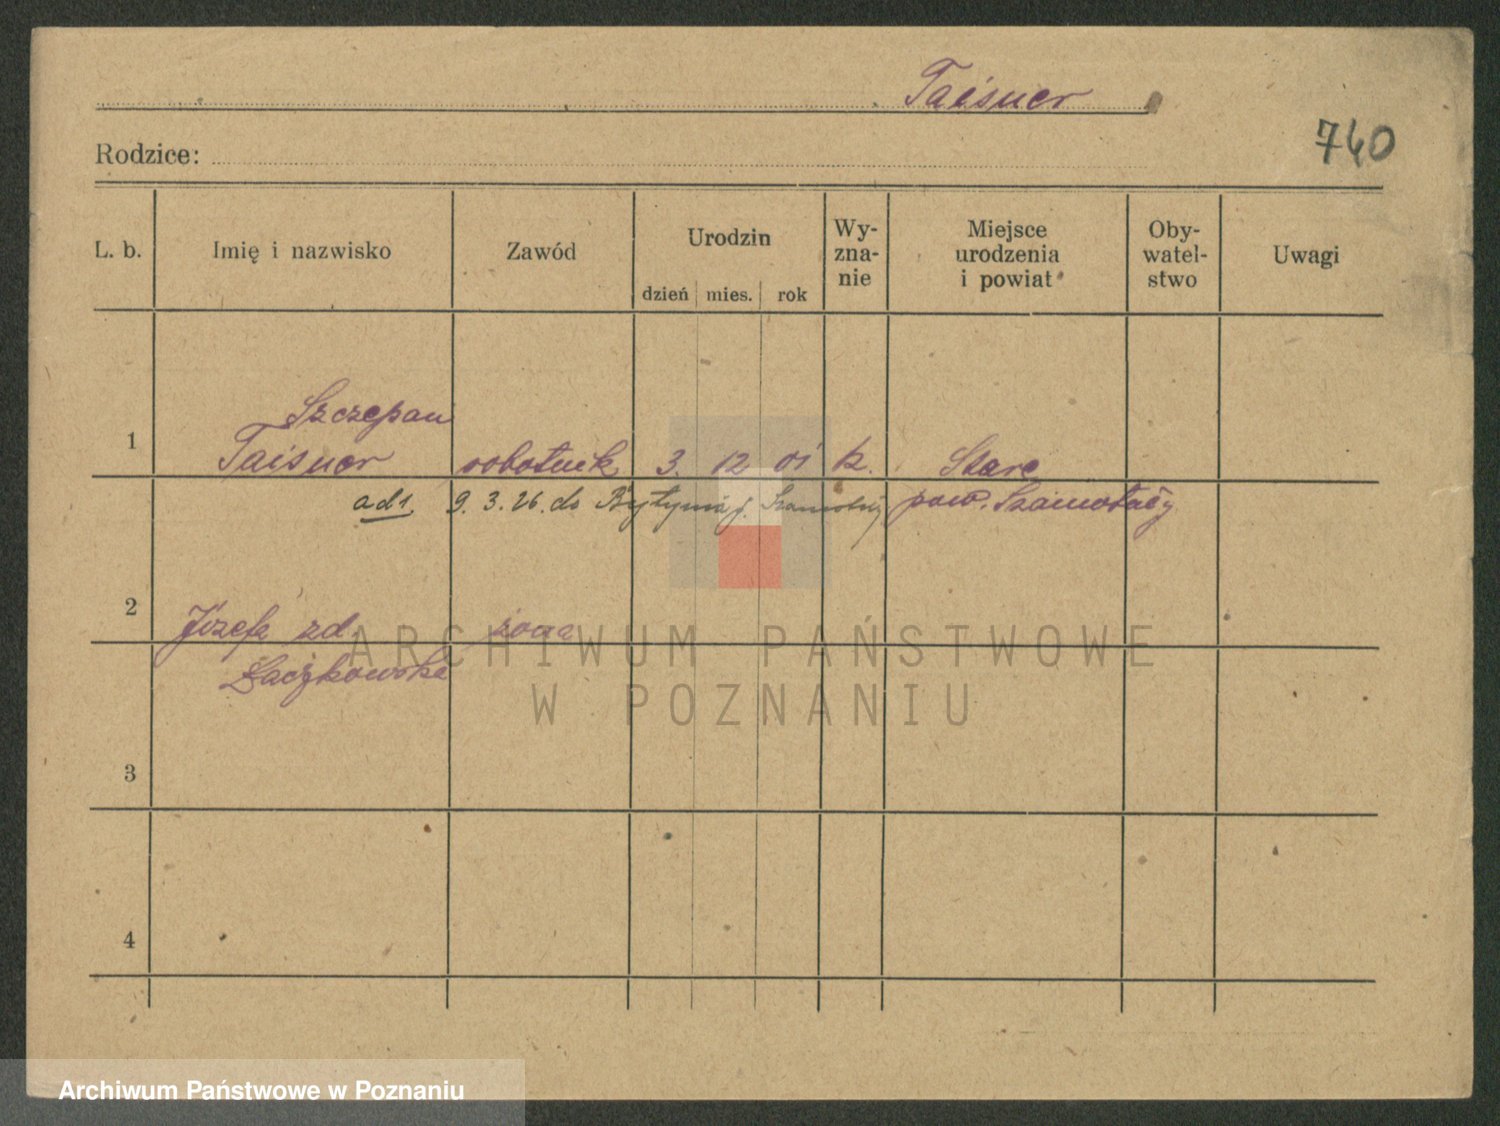 Taisner
740
Rodzice:
L. b. Imię i nazwisko Zawód Urodzin Wy-zna-nie Miejsce urodzenia i powiat Oby-watel-stwo Uwagi
dzień mies. rok
Szczepan
1 Taisner robotnik 3. 12 01 k. Stare
ad 1. 9. 3. 26. do Bytynia p. Szamotuły pow. Szamotuły
2 Józefa zd. żona
Łączkowska
3
4
ARCHIWUM PAŃSTWOWE
W POZNANIU
Archiwum Państwowe w Poznaniu